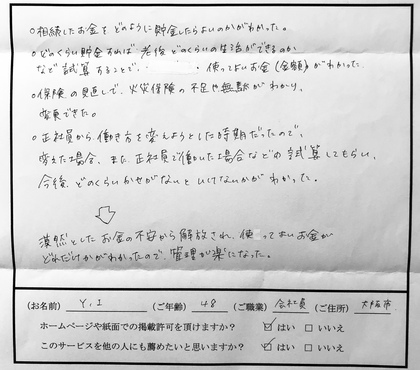 ○相続したお金をどのように貯金したらよいのかがわかった。
○どのくらい貯金すれば老後どのくらいの生活ができるのか
など試算することで、・使ってよいお金(金額)がわかった。
○保険の見直しで、火災保険の不足や無駄がわかり、
変更できた。
○正社員から働き方を変えようとした時期だったので、
変えた場合、また正社員で働いた場合などの試算してもらい、
今後、どのくらいかせがないといけないかがわかった。
⇩
漠然としたお金の不安から解放され、使ってよいお金が
どれだけかがわかったので、管理が楽になった。
(お名前) Y.I (ご年齢) 48 (ご職業) 会社員 (ご住所) 大阪市
ホームページや紙面での掲載許可を頂けますか? ☑はい □いいえ
このサービスを他の人にも薦めたいと思いますか? ☑はい □いいえ